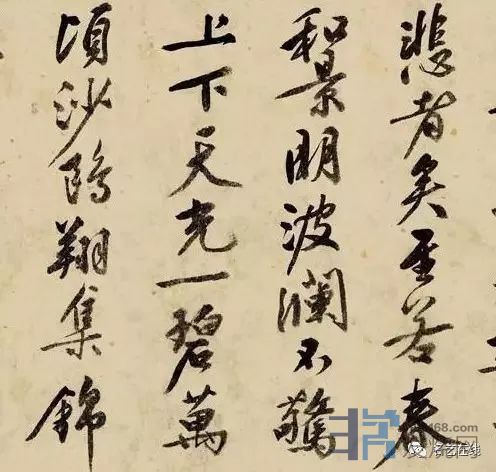 悲者矣至若春
和景明波瀾不驚
上下天光一碧萬
頃沙鷗翔集錦
名艺在线